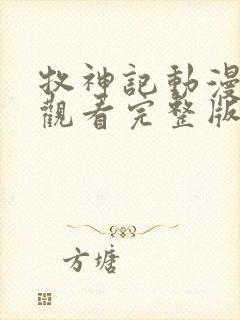 牧神記動漫
觀看完整版
方塘